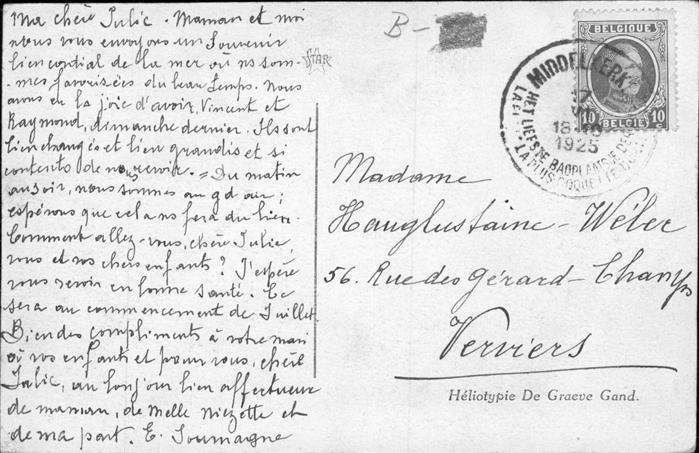 Ma chère Julie. Maman et moi
nous vous envoyons un Souvenir
bien cordial de la mer où ns som-
mes favorisées du beau temps. Nous
avons eu la joie d'avoir, Vincent et
Raymond, dimanche dernier. Ils sont
bien changés et bien grandis et si
contents de ns revoir. = Du matin
au soir, nous sommes au gd air;
espérons que cela ns fera du bien.
Comment allez-vous, chère Julie,
vous et vos chers enfants? J'espère
vous revoir en bonne santé. Ce
sera au commencement de Juillet.
Bien des compliments à votre mari
à vos enfants et pour vous, chère
Julie, un bonjour bien affectueux
de maman, de Melle Niezette et
de ma part. E. Soumagne
B-
STAR
BELGIQUE
10 10
BELGIË
MIDDELKERKE
18-19
1925
HET LIEFSTE BADPLAATSJE DER
LA PLUS COQUETTE
Madame
Hauglustaine-Wéler
56. Rue des Gérard-Champs
Verviers
Héliotypie De Graeve Gand.